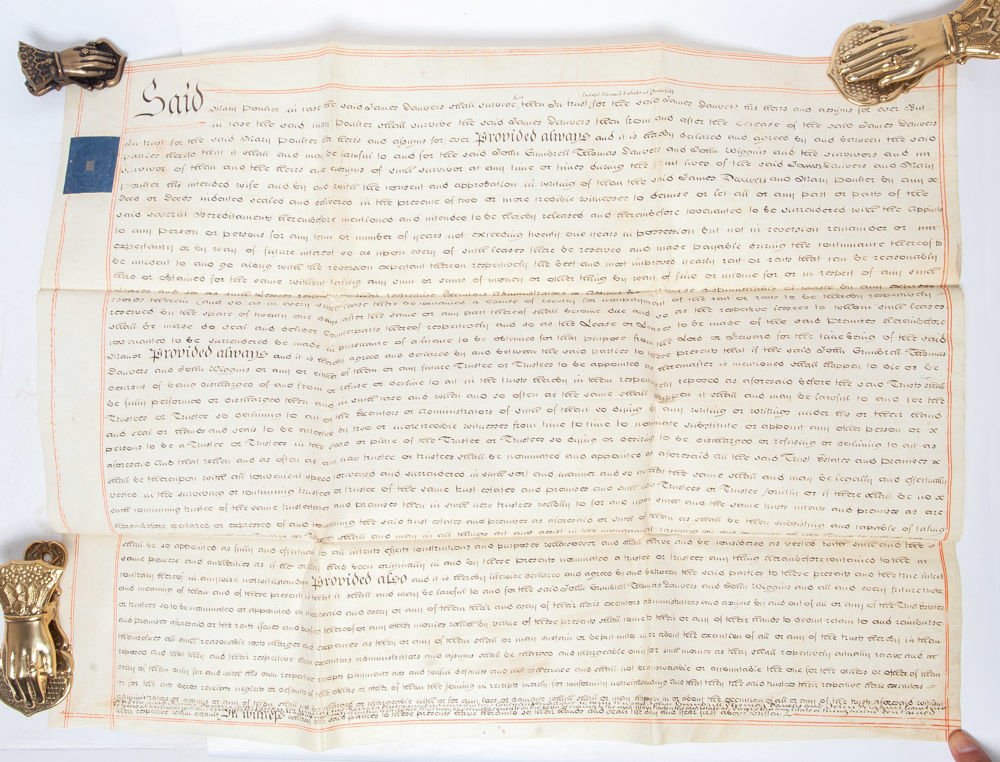 Said Mary Poulter in case the said James Danvers shall survive then In trust for the said James Danvers his heirs and assigns for ever But
in case the said Mary Poulter shall survive the said James Danvers then from and after the decease of the said James Danvers
In trust for the said Mary Poulter her heirs and assigns for ever Provided always and it is hereby declared and agreed by and between the said
parties hereto that it shall and may be lawful to and for the said John Gumbrell Thomas Danvers and John Wiggins and the survivors and
survivor of them and the heirs and assigns of such survivor at any time or times during the joint lives of the said James Danvers and Mary
Poulter his intended wife and by and with the consent and approbation in writing of them the said James Danvers and Mary Poulter by any
deed or deeds indented sealed and delivered in the presence of two or more credible witnesses to demise or let all or any part or parts of the
said several Hereditaments hereinbefore mentioned and intended to be hereby released and hereinbefore covenanted to be surrendered with the
to any person or persons for any term or number of years not exceeding twenty one years in possession but not in reversion remainder or
expectancy or by way of future interest so as upon every of such leases there be reserved and made payable during the continuance thereof to
be incident to and go along with the reversion expectant thereon respectively the best and most improved yearly rent or rents that can be reasonably
had or obtained for the same without taking any sum or sums of money or other thing by way of fine or income for or in respect of any such
words therein and so as in every such lease there be contained a clause of reentry for nonpayment of the rent or rents to be thereby respectively
reserved by the space of twenty one days after the same or any part thereof shall become due and so as the respective lessees to whom such leases
shall be made do seal and deliver Counterparts thereof respectively and so as the Lease or Leases to be made of the said Premises hereinbefore
covenanted to be surrendered be made in pursuance of a license to be obtained for that purpose from the Lord or Steward for the time being of the said
Manor Provided always and it is hereby agreed and declared by and between the said parties to these presents that if the said John Gumbrell Thomas
Danvers and John Wiggins or any or either of them or any future Trustee or Trustees to be appointed as hereinafter is mentioned shall happen to die or be
desirous of being discharged of and from or refuse or decline to act in the trusts hereby in them respectively reposed as aforesaid before the said Trusts shall
be fully performed or discharged then and in such case and when and so often as the same shall happen it shall and may be lawful to and for the
Trustees or Trustee so declining to act or the Executors or Administrators of such of them so dying by any writing or writings under his or their hand
and seal or hands and seals to be attested by two or more credible witnesses from time to time to nominate substitute or appoint any other person or
persons to be a Trustee or Trustees in the stead or place of the Trustee or Trustees so dying or desiring to be discharged or refusing or declining to act as
aforesaid and that when and as often as any new trustee or trustees shall be nominated and appointed as aforesaid all the said Trust Estates and premises
shall be thereupon with all convenient speed conveyed and surrendered in such sort and manner and so as that the same shall and may be legally and effectually
vested in the surviving or continuing trustees or trustee of the same trust estates and premises and such new Trustees or Trustee jointly or if there shall be no
such continuing trustee of the same trust estates and premises then in such new trustees wholly to for and upon such and the same trusts intents and premises as are
hereinbefore declared or expressed of and concerning the said trust estates and premises as aforesaid or such of them as shall be then subsisting and capable of taking
shall be so appointed as fully and effectually to all intents effects constructions and purposes whatsoever and shall have and be considered as vested with such and the
same powers and authorities as if he or they had been originally in and by these presents nominated a trustee or trustees any thing hereinbefore contained to the
contrary thereof in anywise notwithstanding Provided also and it is hereby likewise declared and agreed by and between the said parties to these presents and the true intent
and meaning of them and of these presents is that it shall and may be lawful to and for the said John Gumbrell Thomas Danvers and John Wiggins and all and every future trustee
or trustees so to be nominated or appointed as aforesaid and every or any of them their and every of their heirs executors administrators and assigns by and out of all or any of the Trust Estates
and premises aforesaid or the rents issues and profits thereof or any other monies which by virtue of these presents shall come to their or any of their hands to deduct retain to and reimburse
themselves all such reasonable costs charges and expences as they or any of them shall or may sustain or be put unto in or about the execution of all or any of the trusts hereby in them
reposed and that they and their respective heirs executors administrators and assigns shall be charged and chargeable only for such monies as they shall respectively actually receive and
every of them only for and with his own respective receipts payments acts and wilful defaults and not otherwise and shall not be answerable or accountable the one for the others or other of them
or for the acts deeds receipts neglects or defaults of the others or other of them the joining in receipts merely for conformity notwithstanding and that they the said trustees their respective heirs executors
In witness whereof the said parties to these presents have hereunto set their hands and seals the day and year first above written